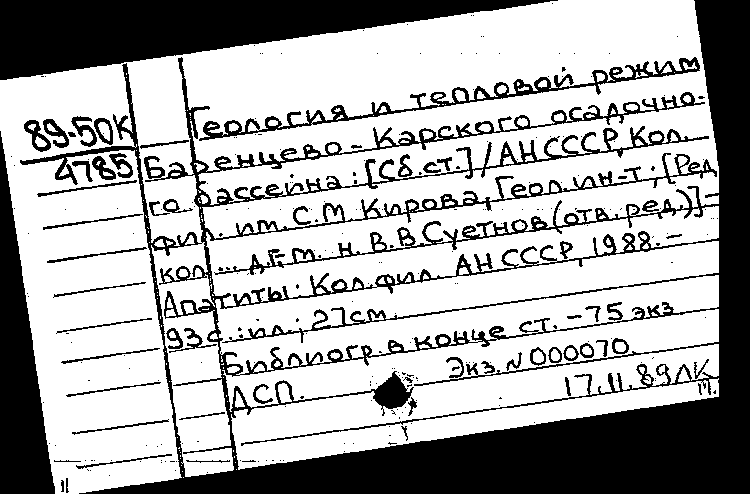 89-50К
4785
Геология и тепловой режим
Баренцево-Карского осадочно-
го бассейна: [Сб.ст.]/АН СССР, Кол.
фил. им. С.М. Кирова, Геол. ин-т; [Ред
кол. ... д.г.-м. н. В.В. Суетнов (отв. ред.)]-
Апатиты: Кол. фил. АН СССР, 1988. -
93 с.: ил.; 27 см.
Библиогр. в конце ст. - 75 экз
ДСП.
Экз. N 000070.
17.11.89 ЛК